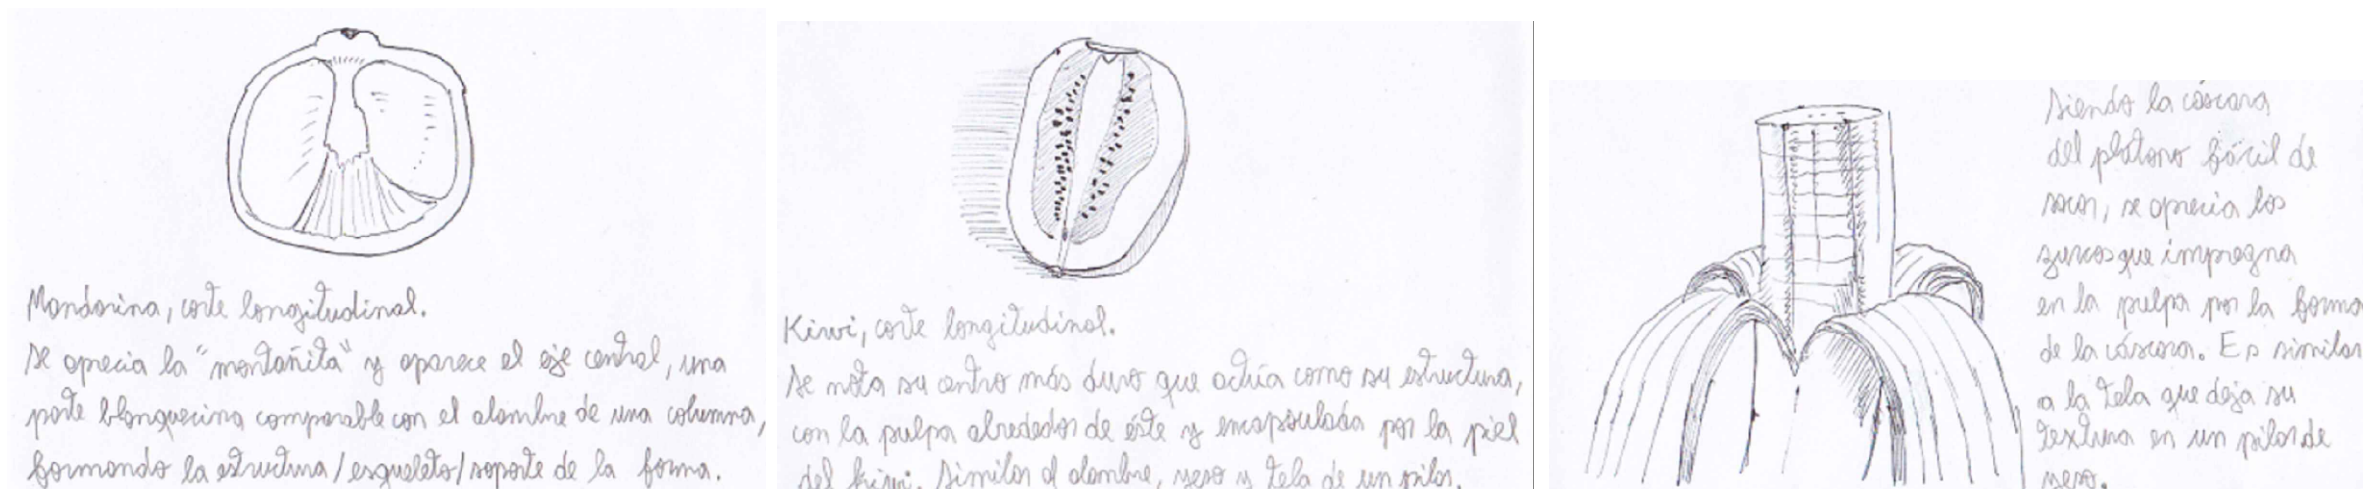 Mandarina, corte longitudinal.
Se aprecia la "montañita" y aparece el eje central, una
parte blanquecina comparable con el alambre de una columna,
formando la estructura/esqueleto/soporte de la forma.
Kiwi, corte longitudinal.
Se nota su centro más duro que actúa como su estructura,
con la pulpa alrededor de éste y encapsulada por la piel
del kiwi. Similar al alambre, yeso y tela de un pilar.
Siendo la cáscara
del plátano fácil de
sacar, se aprecia los
surcos que impregna
en la pulpa por la forma
de la cáscara. Es similar
a la tela que deja su
textura en un pilar de
yeso.